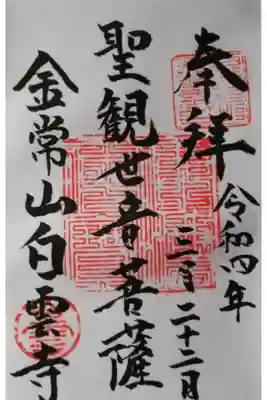 奉拝
令和四年
三月二十二日
聖観世音菩薩
金常山白雲寺